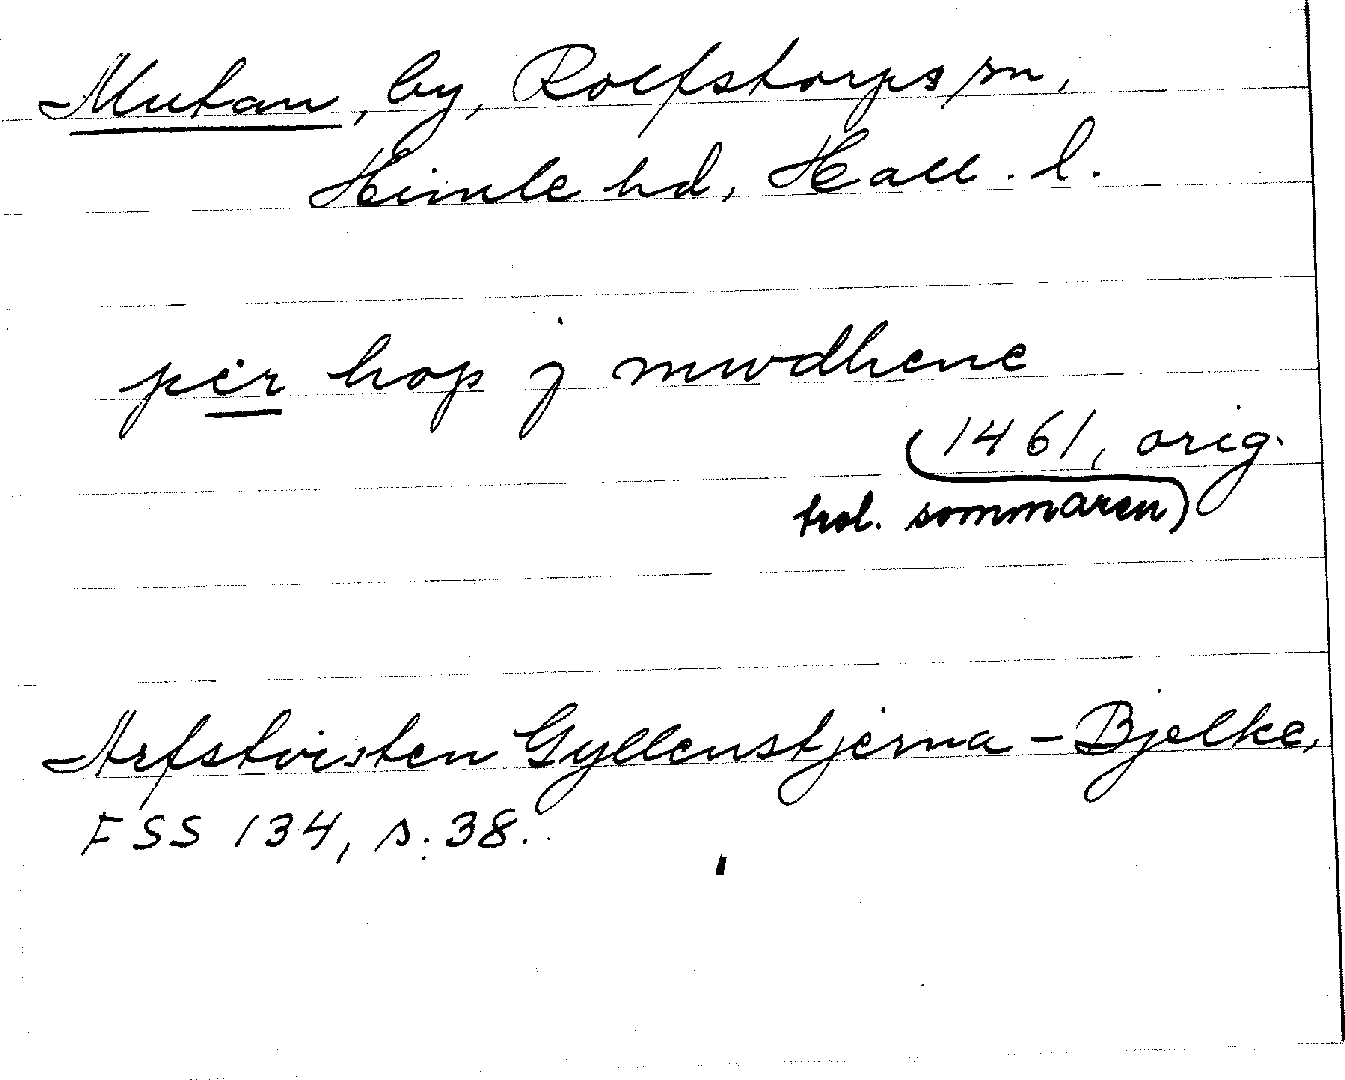 Mutan, by, Rolfstorps sn,
Himle hd, Hall. l.
per hop j mwdhene
(1461, orig.
trol. sommaren)
Arfstvisten Gyllenstjerna - Bjelke,
FSS 134, s. 38.